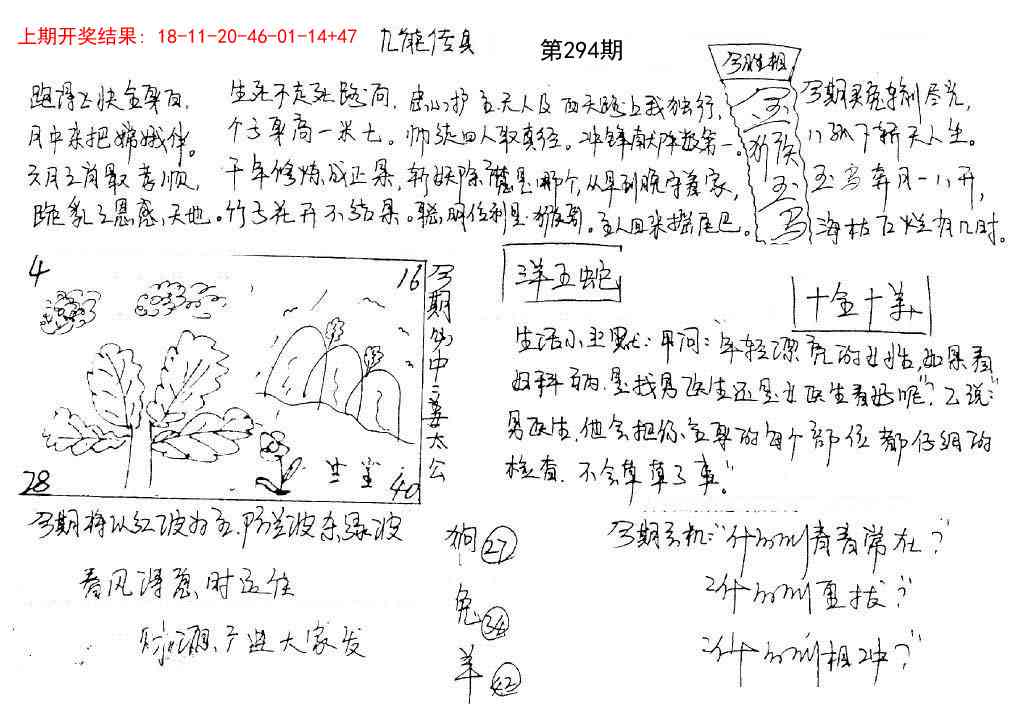 上期开奖结果: 18-11-20-46-01-14+47
九龍传真
第294期
今期胜相
玉
猴
玉
马
跑得飞快全身白,
月中来把嫦娥伴。
六月三肖最孝顺,
跪乳之恩感天地。
生死不走死路间,
个子身高一米七。
千年修炼成正果,
竹子花开不结果。
忠心护主天人反
师徒四人取真经。
斩妖除魔是哪个,
聪明伶利是猴哥。
西天路上我独行,
冲锋献阵数第一。
从早到晚守着家,
主人回来摇尾巴。
今期买兔剩尽光,
八孤下斩天人生。
玉马奔月一八开,
海枯石烂有几时。
4
16
28
40
今期的中主姜太公
洋五蛇
十全十羊
生活小幽默: 甲问:"年轻漂亮的女性,如果看
妇科病,是找男医生还是女医生看好呢"?乙说:"
男医生,他会把你全身的每个部位都仔细的
检查,不会草草了事。"
今期将以红波为主,防兰波东绿波
春风得意时运佳
财源广进大家发
狗 27
兔 34
羊 42
今期玄机:"什么叫青春常在?"
"什么叫更拔?"
"什么叫相冲?"